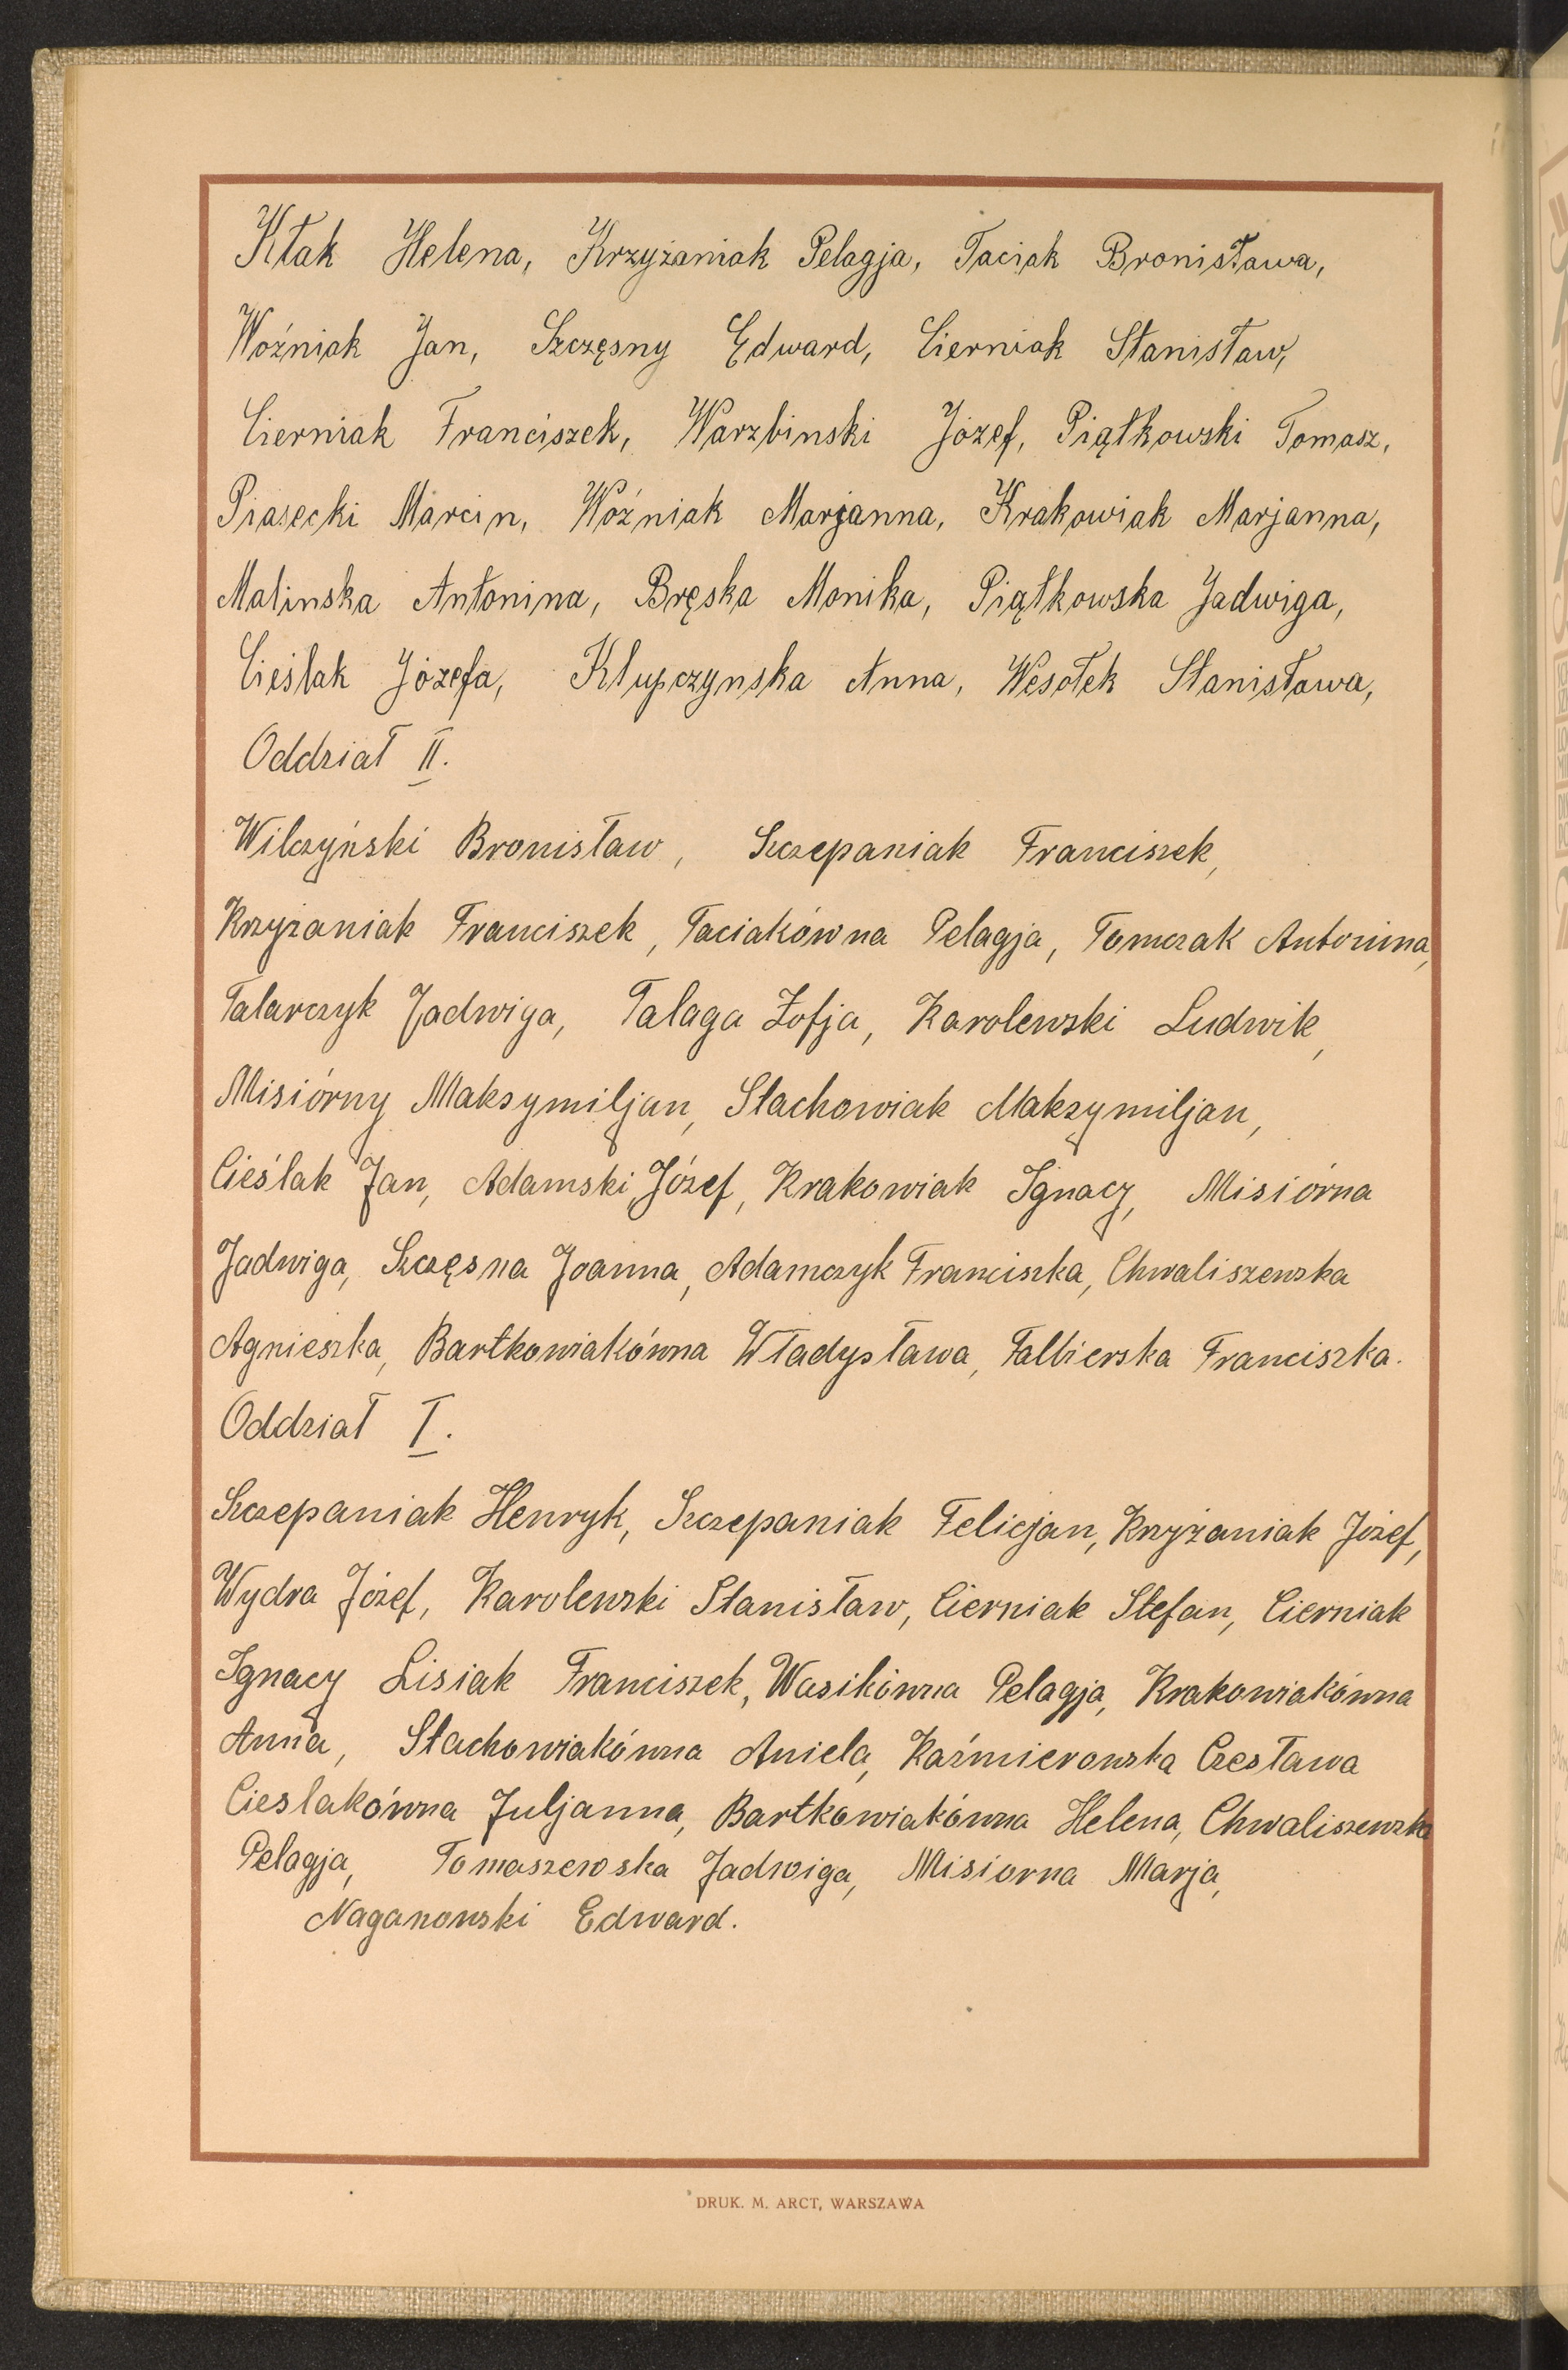 Kłak Helena, Krzyżaniak Pelagja, Taciak Bronisława,
Woźniak Jan, Szczęsny Edward, Cierniak Stanisław,
Cierniak Franciszek, Warzbinski Józef, Piątkowski Tomasz,
Piasecki Marcin, Woźniak Marjanna, Krakowiak Marjanna,
Malinska Antonina, Bręska Monika, Piątkowska Jadwiga,
Cieślak Józefa, Klupczynska Anna, Wesołek Stanisława,
Oddział II.
Wilczyński Bronisław, Szczepaniak Franciszek,
Krzyżaniak Franciszek, Taciakówna Pelagja, Tomczak Antonina,
Talarczyk Jadwiga, Talaga Zofja, Karolewski Ludwik,
Misiórny Maksymiljan, Stachowiak Maksymiljan,
Cieślak Jan, Adamski Józef, Krakowiak Ignacy, Misiórna
Jadwiga, Szczęsna Joanna, Adamczyk Franciszka, Chwaliszewska
Agnieszka, Bartkowiakówna Władysława, Falbierska Franciszka.
Oddział I.
Szczepaniak Henryk, Szczepaniak Felicjan, Krzyżaniak Józef,
Wydra Józef, Karolewski Stanisław, Cierniak Stefan, Cierniak
Ignacy Lisiak Franciszek, Wasikówna Pelagja, Krakowiakówna
Anna, Stachowiakówna Aniela, Kaźmierowska Czesława
Cieslakówna Juljanna, Bartkowiakówna Helena, Chwaliszewska
Pelagja, Tomaszewska Jadwiga, Misiorna Marja,
Naganowski Edward.
DRUK. M. ARCT, WARSZAWA